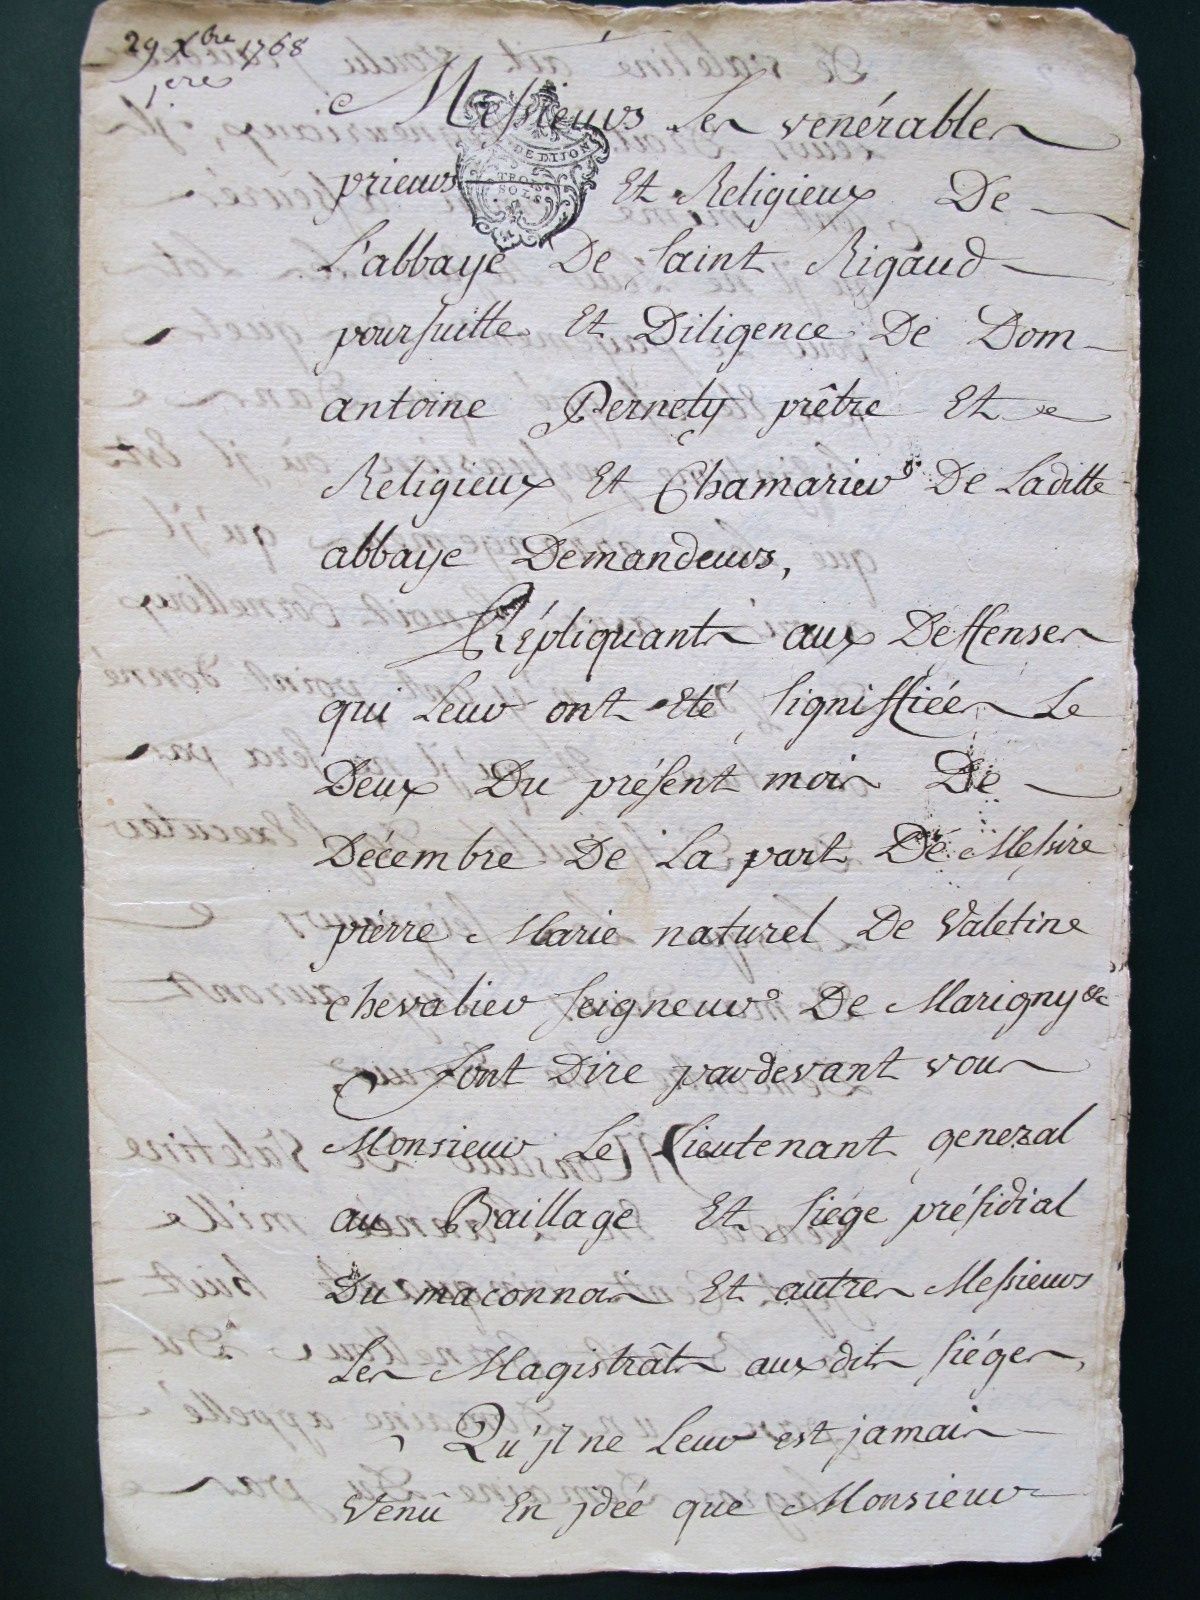 29 Xbre 1768
1ere
Messieurs Les venérables
prieurs Et Religieux De
DE DIJON
TROIS
SOLS
L'abbaye De Saint Rigaud
poursuitte Et Diligence De Dom
antoine Pernety prêtre Et
Religieux Et Chamarier De Laditte
abbaye Demandeurs,
Répliquants aux Deffenses
qui Leur ont Eté signiffiées Le
Deux Du présent mois De
Décembre De La part De Messire
pierre Marie naturel De Valetine
chevalier seigneur De Marigny &c
font Dire pardevant vous
Monsieur Le Lieutenant general
au Baillage Et siége présidial
Du maconnois Et autres Messieurs
Les Magistrâts auxdits siéges,
Qu'jl ne Leur est jamais
venû En jdée que Monsieur